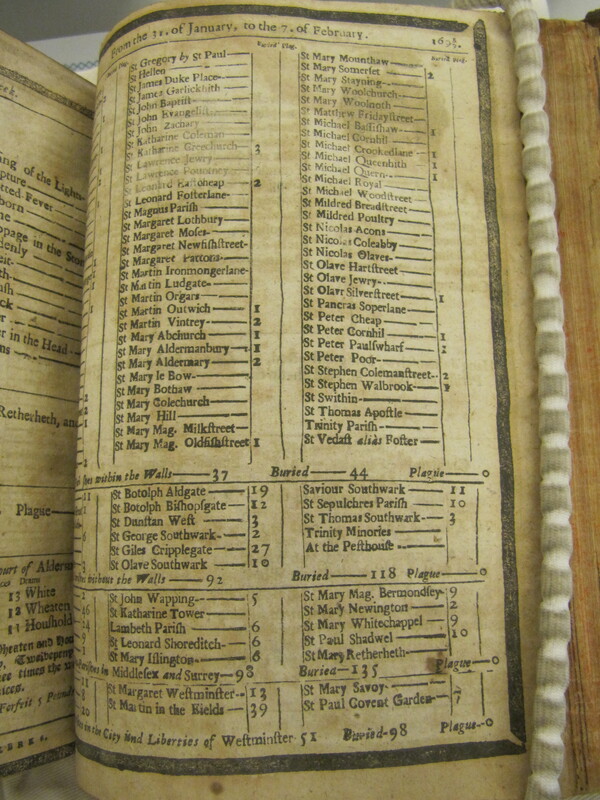 From the 31. of January, to the 7. of February. 169⅞.
Buried Plag. Buried Plag.
St Gregory by St Paul
St Hellen
St James Duke Place
St James Garlickhith
St John Baptist
St John Evangelist
St John Zachary
St Katharine Coleman
St Katharine Creechurch 3
St Lawrence Jewry
St Lawrence Pountney
St Leonard Eastcheap 2
St Leonard Fosterlane
St Magnus Parish
St Margaret Lothbury
St Margaret Moses
St Margaret Newfishstreet
St Margaret Pattons
St Martin Ironmongerlane
St Martin Ludgate
St Martin Orgars
St Martin Outwich 1
St Martin Vintrey 2
St Mary Abchurch 1
St Mary Aldermanbury 1
St Mary Aldermary 2
St Mary le Bow
St Mary Bothaw
St Mary Colechurch
St Mary Hill
St Mary Mag. Milkstreet
St Mary Mag. Oldfishstreet 1
St Mary Mounthaw
St Mary Somerset 2
St Mary Stayning
St Mary Woolchurch
St Mary Woolnoth
St Matthew Fridaystreet
St Michael Bassishaw 1
St Michael Cornhil
St Michael Crookedlane 1
St Michael Queenhith 1
St Michael Quern 1
St Michael Royal
St Michael Woodstreet
St Mildred Breadstreet
St Mildred Poultry
St Nicolas Acons
St Nicolas Coleabby
St Nicolas Olaves
St Olave Hartstreet
St Olave Jewry
St Olave Silverstreet 1
St Pancras Soperlane
St Peter Cheap
St Peter Cornhil 1
St Peter Paulswharf 2
St Peter Poor
St Stephen Colemanstreet 2
St Stephen Walbrook
St Swithin
St Thomas Apostle
Trinity Parish
St Vedast alias Foster
within the Walls 37 Buried 44 Plague 0
St Botolph Aldgate 19
St Botolph Bishopsgate 12
St Dunstan West 3
St George Southwark 2
St Giles Cripplegate 27
St Olave Southwark 10
Saviour Southwark 11
St Sepulchres Parish 10
St Thomas Southwark 3
Trinity Minories
At the Pesthouse
without the Walls 92 Buried 118 Plague 0
St John Wapping 5
St Katharine Tower
Lambeth Parish 6
St Leonard Shoreditch 6
St Mary Islington 6
St Mary Mag. Bermondsey 9
St Mary Newington 2
St Mary Whitechappel 9
St Paul Shadwel 10
St Mary Retherheth
in Middlesex and Surrey 98 Buried 135 Plague 0
St Margaret Westminster 13
St Martin in the Fields 39
St Mary Savoy
St Paul Covent Garden 7
in the City and Liberties of Westminster 51 Buried 98 Plague 0
Retherheth, and
Plague
13 White
12 Wheaten
Houshold
Forfeit 5